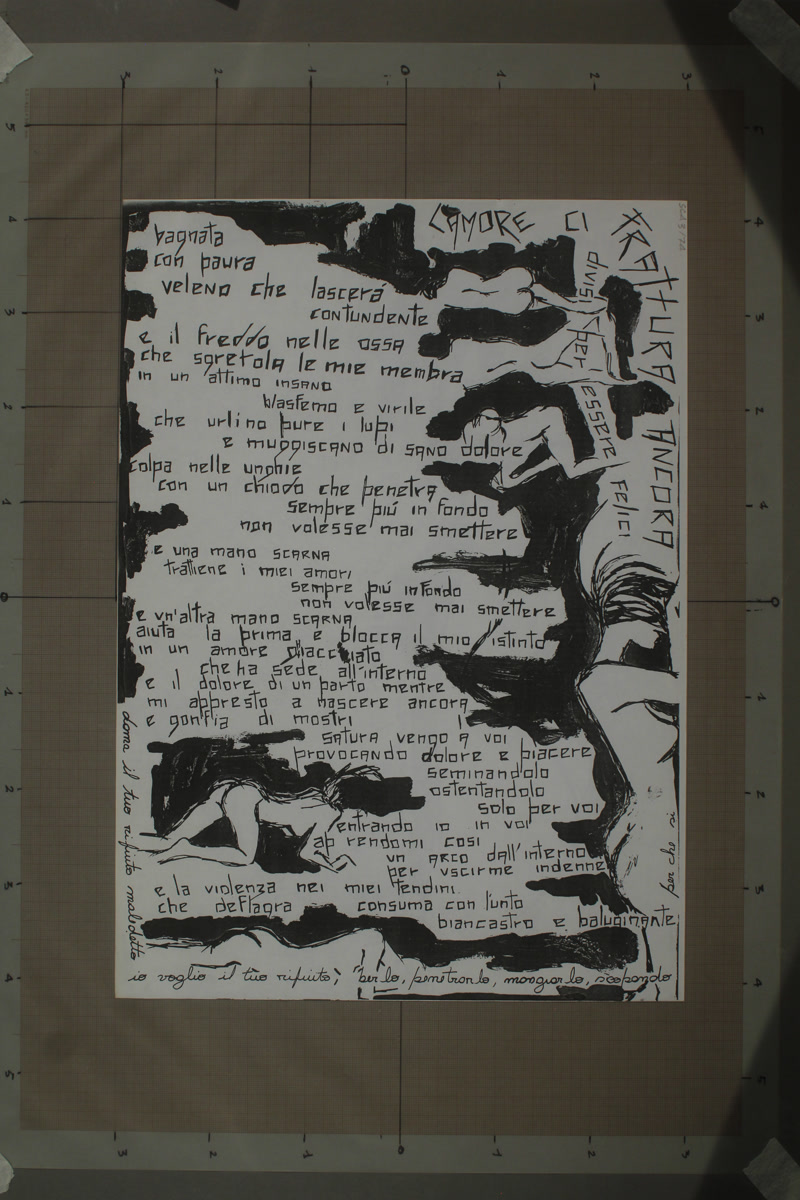 L'AMORE CI
STRATTURA ANCORA
divisi per essere felici
bagnata
con paura
veleno che lascerá
contundente
e il freddo nelle ossa
che sgretola le mie membra
in un attimo insano
blasfemo e virile
che urlino pure i lupi
e muggiscano di sano dolore
colpa nelle unghie
con un chiodo che penetra
sempre piú in fondo
non volesse mai smettere
e una mano scarna
trattiene i miei amori
sempre piú in fondo
non volesse mai smettere
e un'altra mano scarna
aiuta la prima e blocca il mio istinto
in un amore ghiacciato
che ha sede all'interno
e il dolore di un parto mentre
mi appresto a nascere ancora
e gonfia di mostri
satura vengo a voi
provocando dolore e piacere
seminandolo
ostentandolo
solo per voi
entrando io in voi
ap rendomi cosi
un arco dall'interno
per uscirne indenne
e la violenza nei miei tendini
che deflagra consuma con l'unto
biancastro e baluginante
io voglio il tuo rifiuto, ber lo, penetrarlo, mangiarlo, scopando
il tuo rifiuto maledetto
per